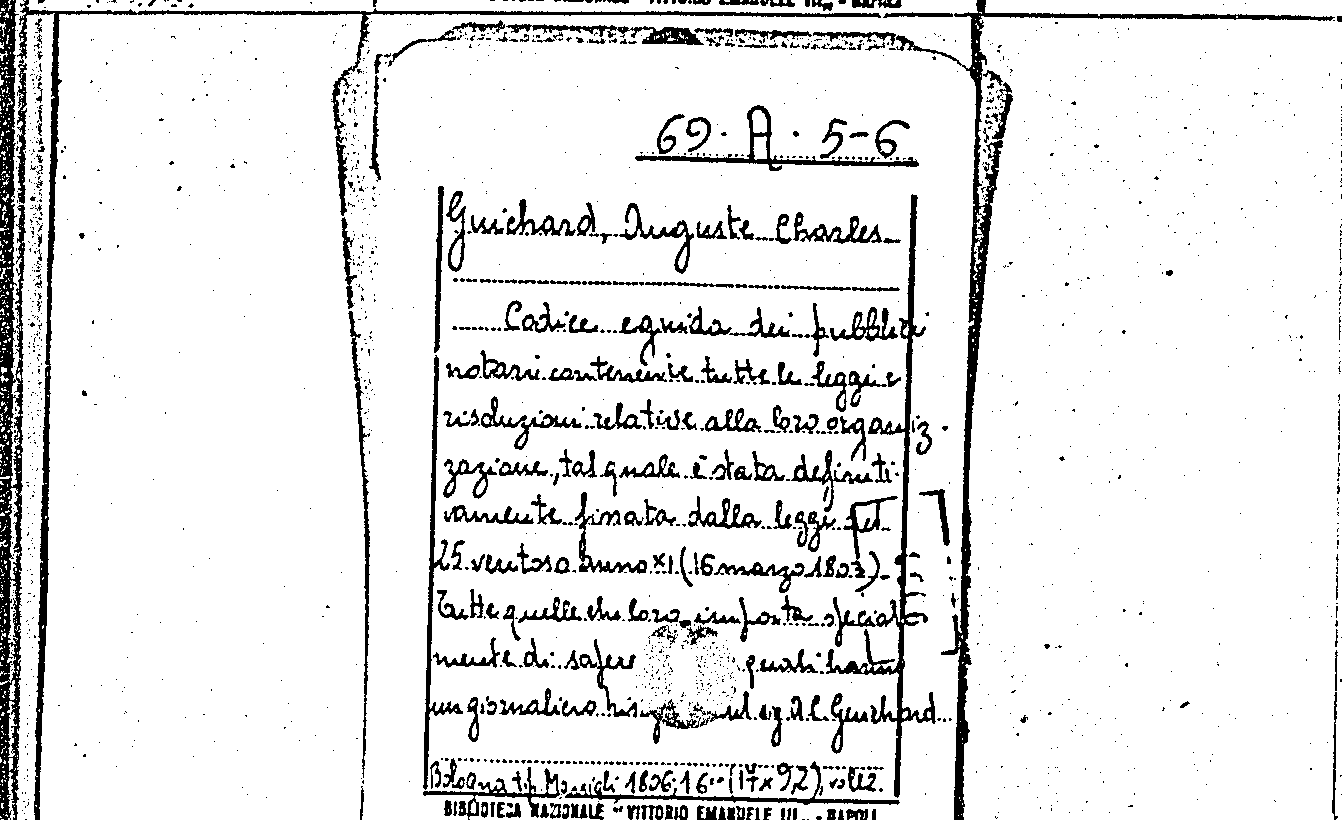 BIBLIOTECA NAZIONALE "VITTORIO EMANUELE III" - NAPOLI
69 · A · 5-6
Guichard, Auguste Charles
Codice e guida dei pubblici
notari contenente tutte le leggi e
risoluzioni relative alla loro organiz-
zazione, tal quale è stata definiti-
vamente fissata dalla leggi del
25 ventoso anno XI (16 marzo 1803)
Tutte quelle che loro importa special
mente di sapere quali hanno
un giornaliero A. C. Guichard
Bologna tip. Marsigli 1806; 16° (17 x 9,2), voll 2.
BIBLIOTECA NAZIONALE "VITTORIO EMANUELE III" - NAPOLI